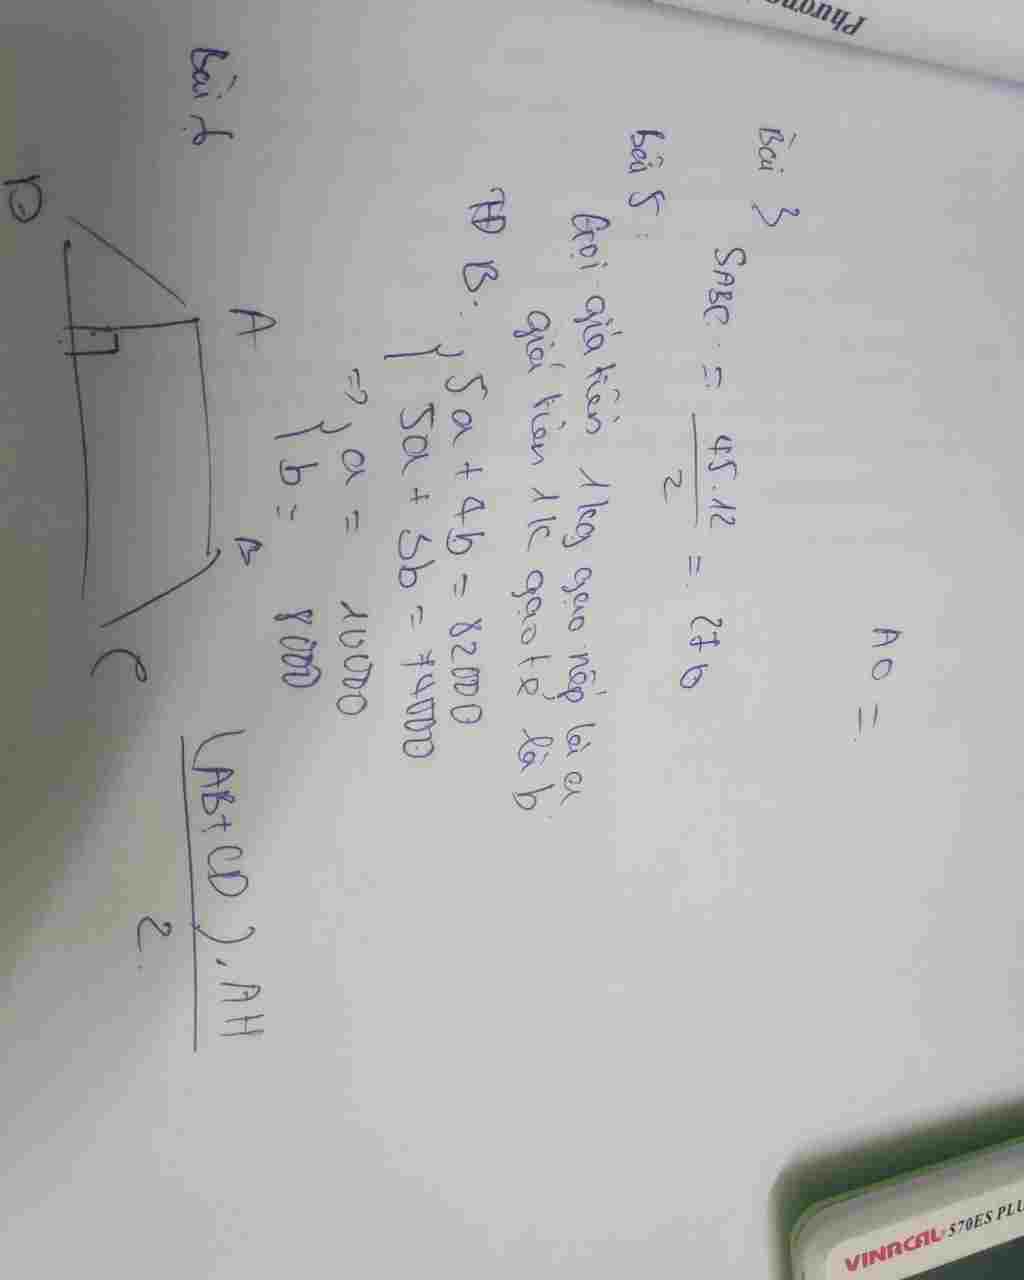 Phương
A0 =
Bài 3
SABC = 45.12 / 2 = 270
bài 5:
Gọi giá tiền 1kg gạo nếp là a
giá tiền 1k gạo tẻ là b
B.
{ 5a + 4b = 82000
{ 5a + 3b = 74000
=> { a = 10000
{ b = 8000
Bài 6
A B
D C
(AB+CD).AH
2
VINACAL 570ES PLU